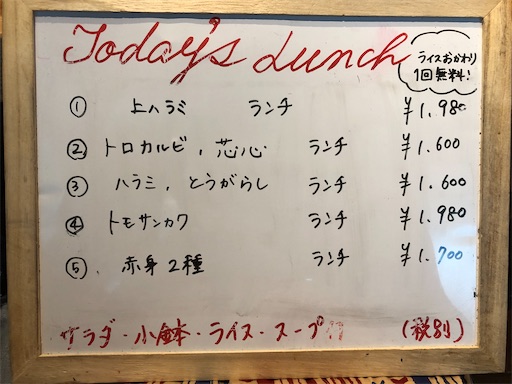 Today's Lunch
ライスおかわり
1回無料!
① 上ハラミ ランチ ¥1,980
② トロカルビ、芯心 ランチ ¥1.600
③ ハラミ、とうがらし ランチ ¥1.600
④ トモサンカク ランチ ¥1.980
⑤ 赤身2種 ランチ ¥1.700
サラダ・小鉢・ライス・スープ付 (税別)